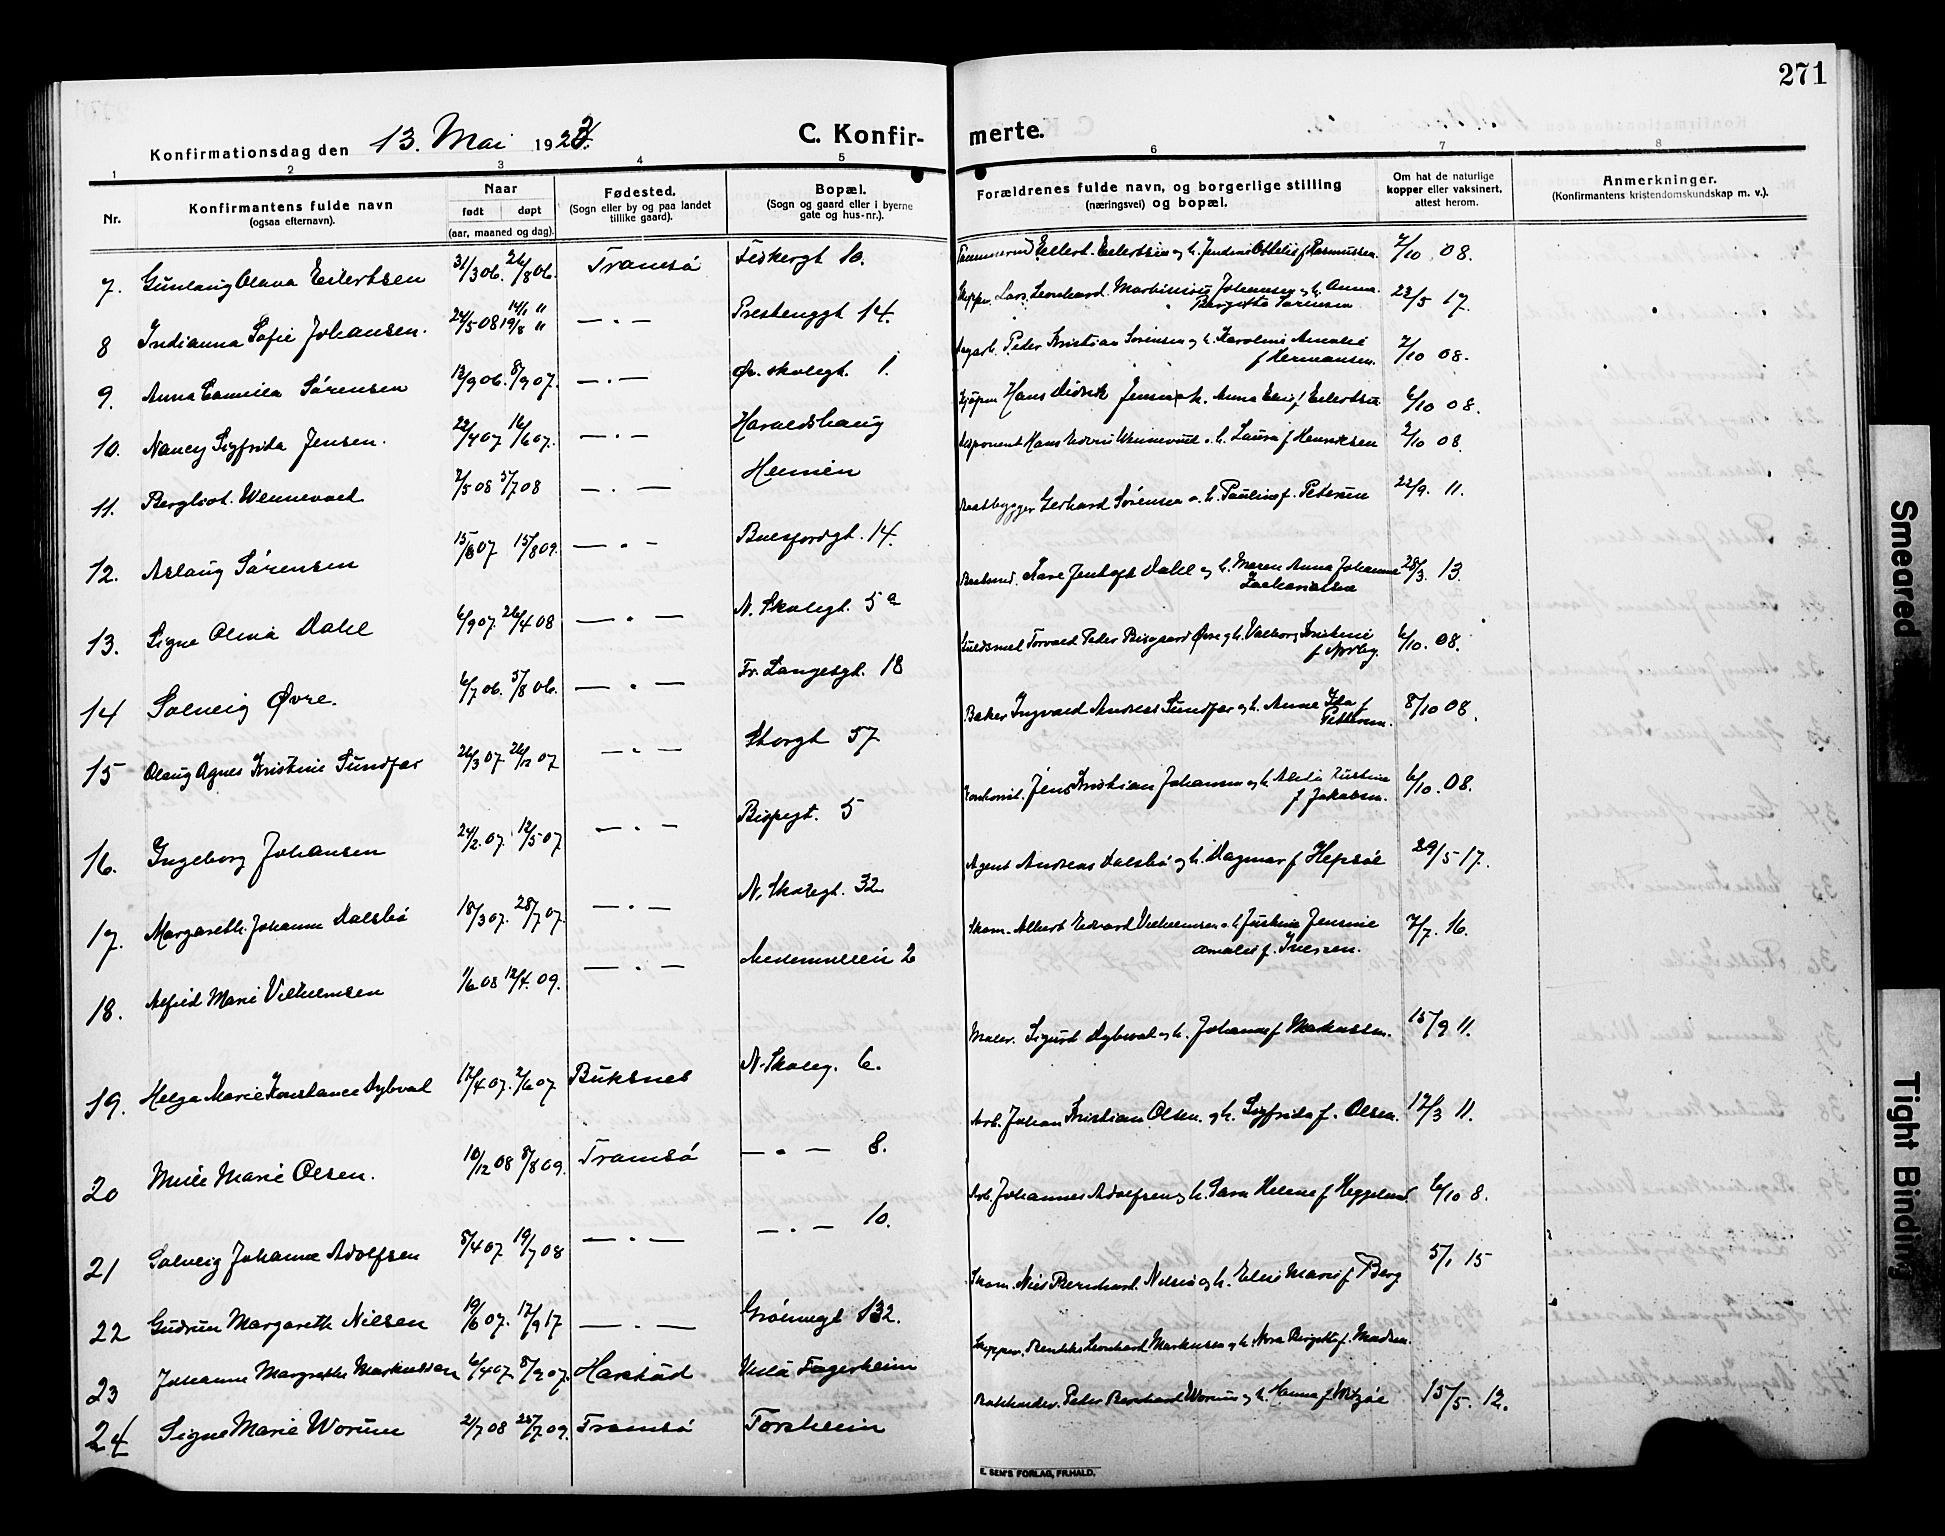 271
Konfirmationsdag den 13. Mai 1923.
C. Konfirmerte.
1 2 3 4 5 6 7 8
Nr.
Konfirmantens fulde navn
(ogsaa efternavn).
Naar
født døpt
(aar, maaned og dag).
Fødested.
(Sogn eller by og paa landet
tillike gaard).
Bopæl.
(Sogn og gaard eller i byerne
gate og hus-nr.).
Forældrenes fulde navn, og borgerlige stilling
(næringsvei) og bopæl.
Om hat de naturlige
kopper eller vaksinert,
attest herom.
Anmerkninger.
(Konfirmantens kristendomskundskap m. v.).
7. Gunlaug Olava Eilertsen 31/3 06. 26/8 06. Tromsö Fiskergt 10. Eilert Eilertsen og h. Jendine Ottilie f Rasmussen 7/10 08.
8 Indianna Sofie Johansen. 24/5 08 19/8 " — " — Prestenggt 14. Skipper Lars Leonhard Martinius Johansen og h. Anna Bergitta Sørensen 22/5 17.
9. Anna Camilla Sørensen 12/9 06. 8/9 07. — " — Gr. skolegt. 1. Peder Kristian Sørensen og h. Karoline Amalie f Hermansen. 7/10 08.
10. Nancy Sigfrida Jensen. 22/4 07 16/6 07. — " — Haraldshaug Hans Didrik Jensen o h. Anna Elise f Eilertsen 6/10 08.
11. Bergliot Wennevold 2/5 08 5/7 08 — " — Heimen Hans Edvin Wennevold o. h. Laura f Henriksen 2/10 08.
12. Aslaug Sørensen 15/8 07 15/8 09. — " — Buesfordgt. 14. Baatbygger Gerhard Sørensen o. h. Pauline f. Petersen 22/9. 11.
13. Signe Olina Dahl 6/9 07. 26/4 08 — " — N. Skolegt. 5 a Kare Jentoft Dahl og h. Maren Anna Johanna Zachariassen 28/3. 13.
14 Solveig Øvre. 6/7 06. 5/8 06. — " — Fr. Langesgt. 18 Guldsmed Torvald Peder Bisgaard Øvre og h. Valborg Kristine f Norby. 6/10. 08.
15 Olaug Agnes Kristine Sundfær 26/3 07 26/12 07 — " — Storgt 57 Baker Ingvald Andreas Sundfær og h. Anna Ida f Pettersen. 8/10 08.
16. Ingeborg Johansen 24/2. 07. 12/5 07 — " — Bispegt. 5 Jens Kristian Johansen og h. Justine f Jakobsen. 6/10. 08.
17. Margareth Johanne Dalsbö 18/3 07. 28/7 07. — " — N. Skolegt. 32 Agent Andreas Dalsbö og h. Dagmar f Hepsöe 29/5 17.
18. Alfild Marie Vilhelmsen 1/6 08 12/4. 09. — " — Mellemveien 2 Skom. Albert Edvard Vilhelmsen o h Justine Jensine Amalie f. Iversen. 7/7. 16.
19. Helga Marie Konstance Dybvad 17/4 07. 2/6 07 Buksnes N. Skoleg. 6. Maler. Sigurd Dybvad og h. Johanne f Markussen. 15/9 11.
20 Mille Marie Olsen. 10/12 08 8/8 09. Tromsö — " — 8. Arb. Johan Kristian Olsen. og h. Sigfrida f. Olsen. 17/3 11.
21 Solveig Johanna Adolfsen 8/4 07 19/7 08 — " — — " — 10. Arb. Johannes Adolfsen og h. Sara Helene f Heggelund 6/10 8.
22 Gudrun Margareth Nilsen 19/6 07. 17/9 17 — " — Grönnegt 132. Skom. Nils Bernhard. Nilsen og h. Elise Marie f Berg 5/1 15
23 Johanne Margrethe Markussen 6/4 07. 8/9 07. Harstad Villa Fagerheim Skipper. Leonhard Markussen og h. Nora Bergitte f. Madsen.
24 Signe Marie Worum 2/7 08 25/7 09. Tromsö Forsheim Peter Bernhard Worum og h. Hanna f 15/5. 12.
E. SEM'S FORLAG, FR.HALD.
Smeared
Tight Binding